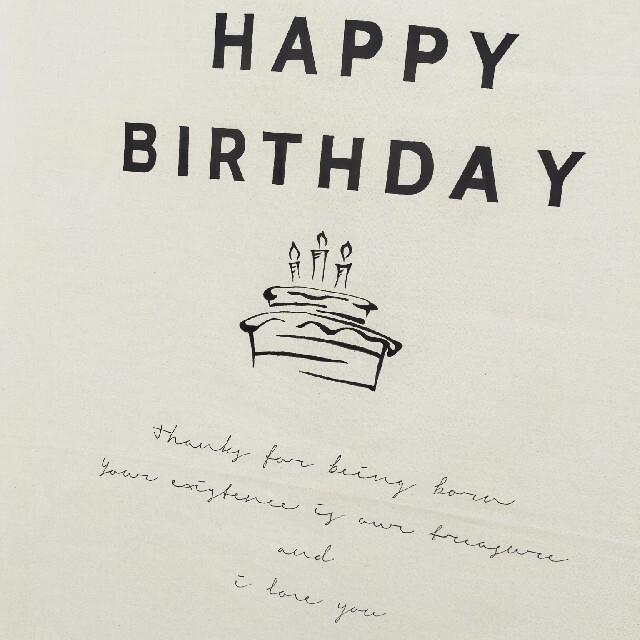 HAPPY
BIRTHDAY
thanks for being born
Your existence is our treasure
and
i love you